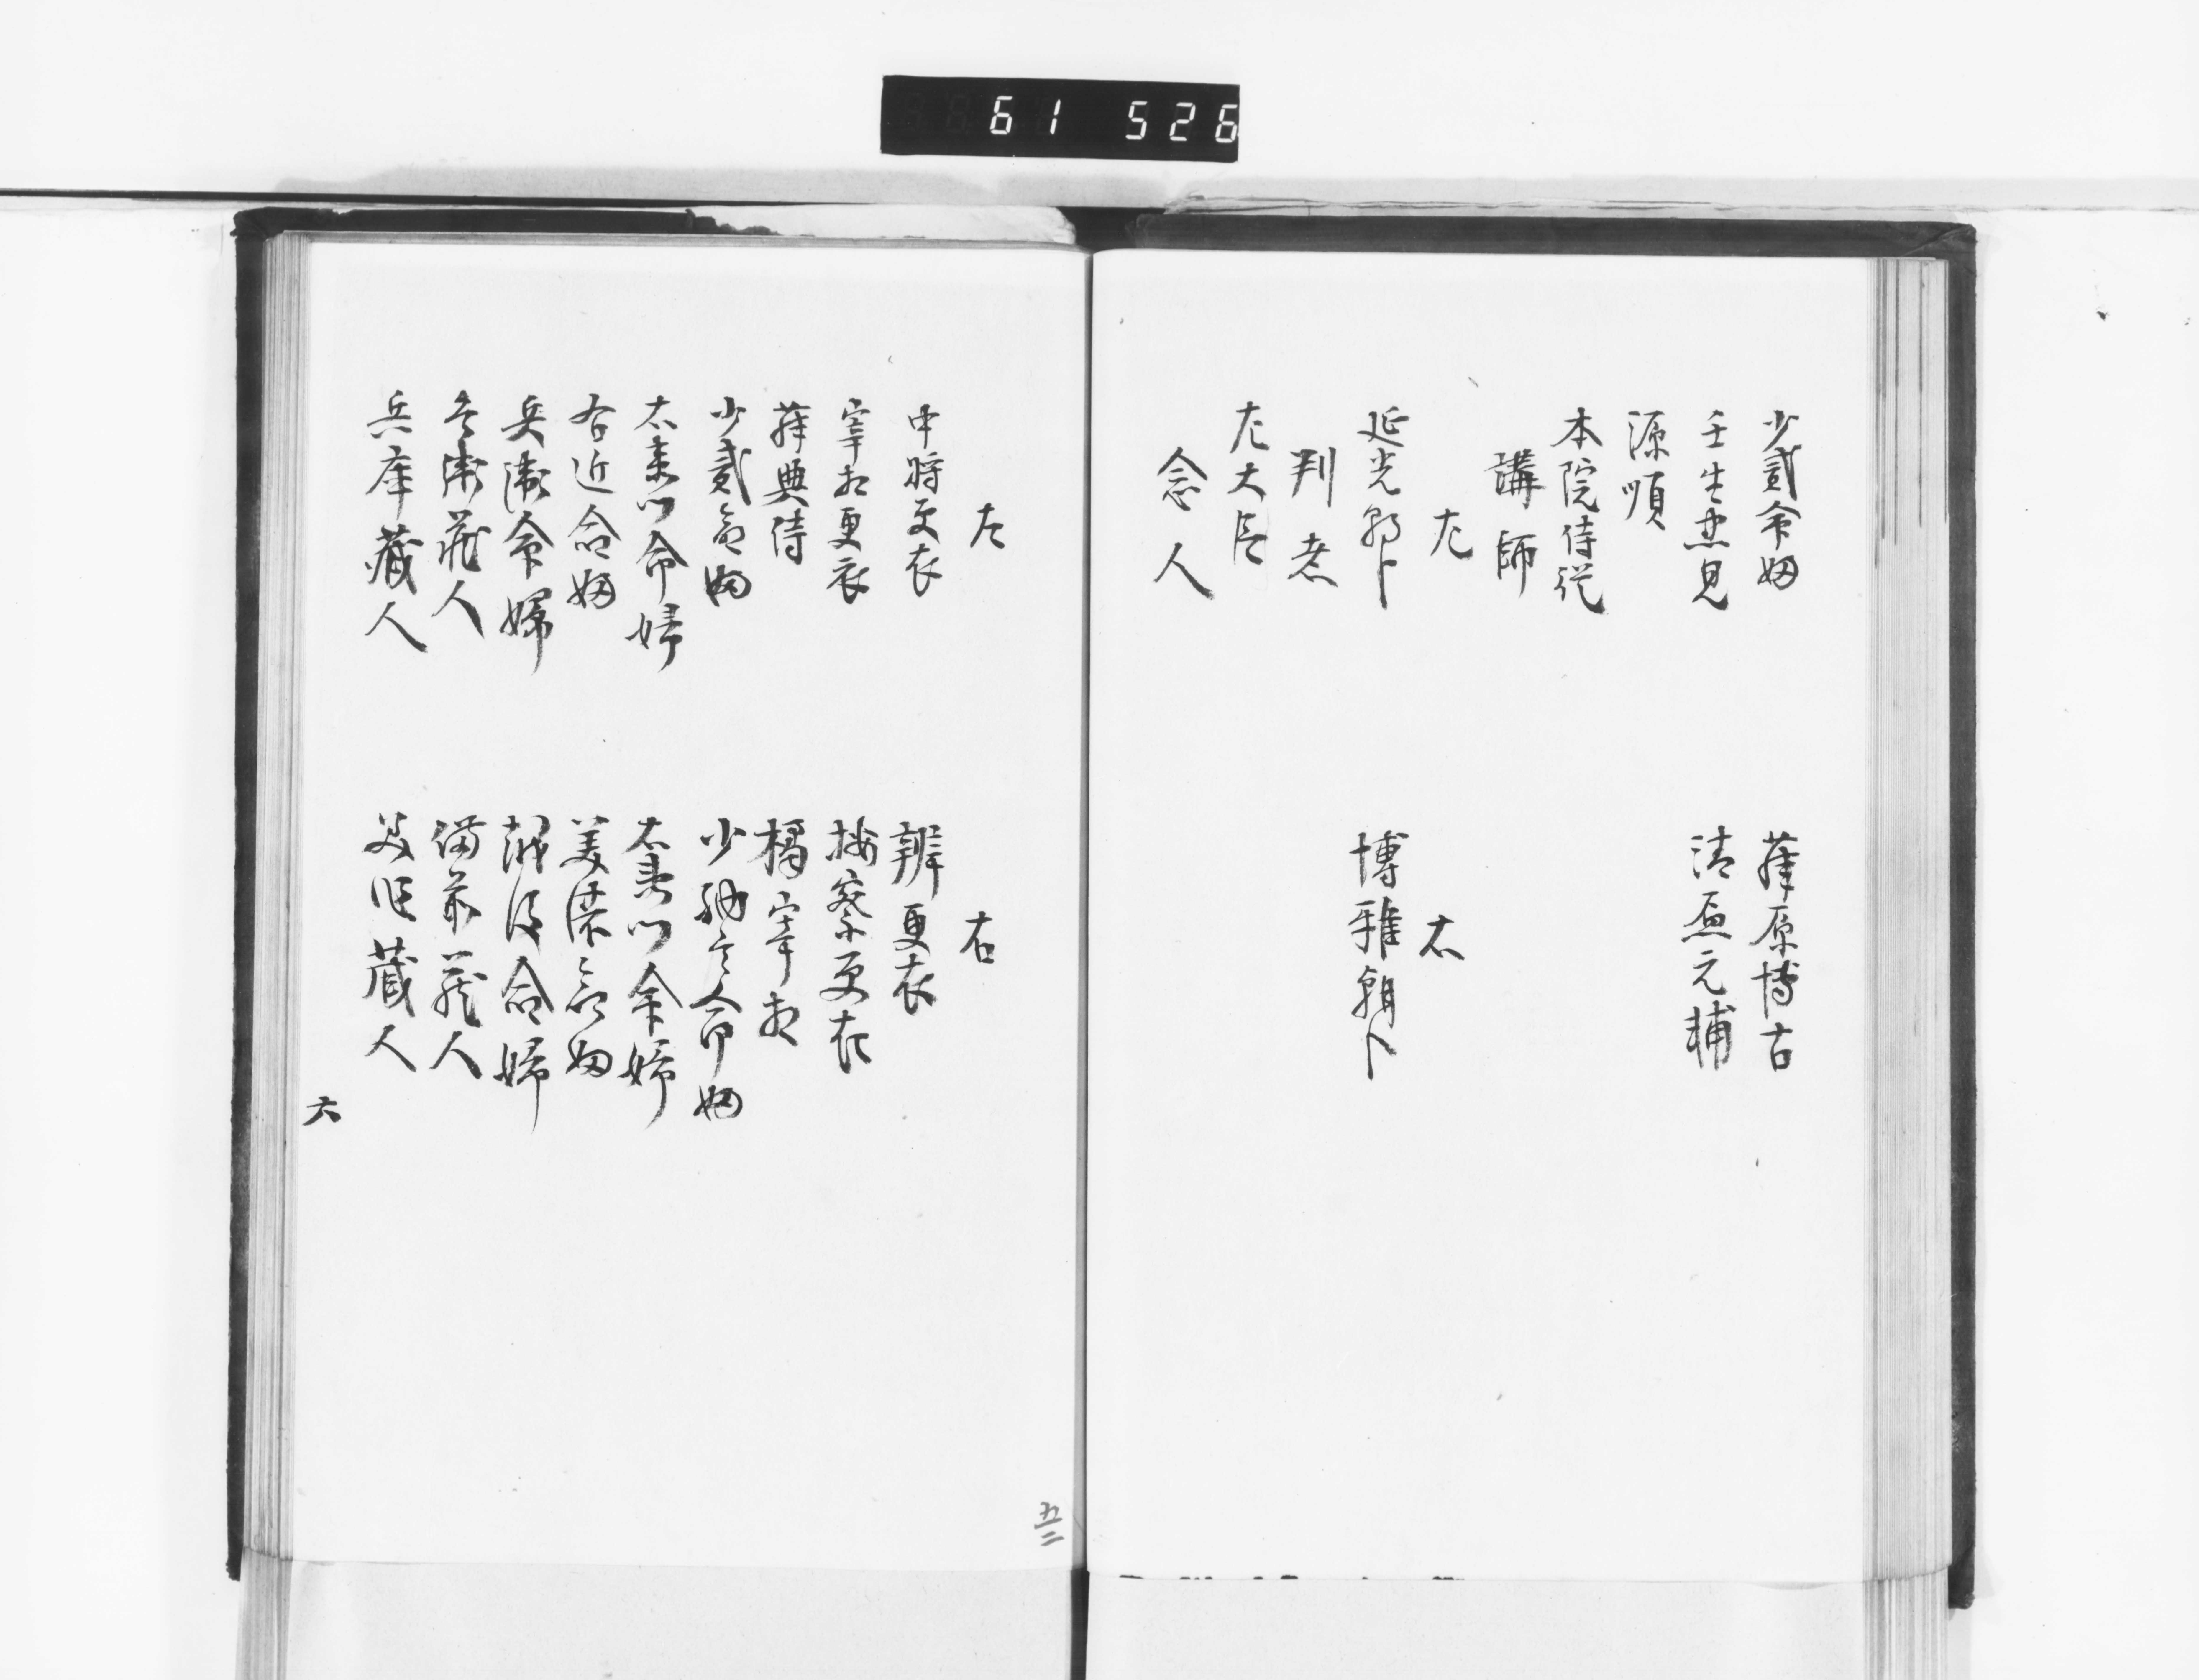 61 526
少貳命婦 藤原博古
壬生忠見 清原元輔
源順
本院侍従
講師
左 右
延光朝臣 博雅朝臣
判者
左大臣
念人
左 右
中将更衣 辨更衣
宰相更衣 按察更衣
藤典侍 橘宰相
少貳命婦 少納言命婦
右衛門命婦 右衛門命婦
右近命婦 美濃命婦
兵衛命婦 越後命婦
兵衛蔵人 備前蔵人
兵庫藏人 美作蔵人
六
五二